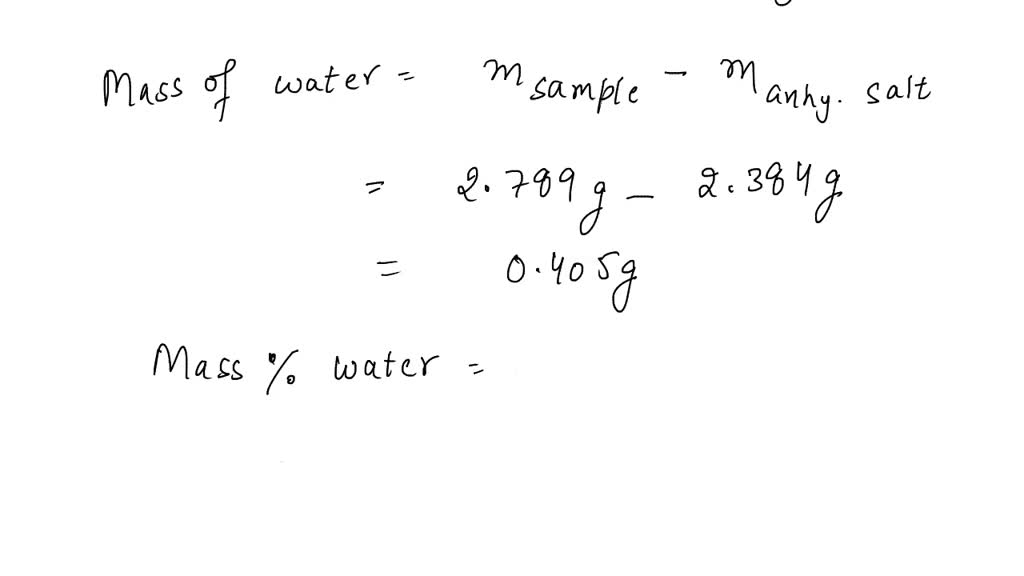 Mass of water = m sample - m anhy. salt
= 2.789g - 2.384g
= 0.405g
Mass % water =